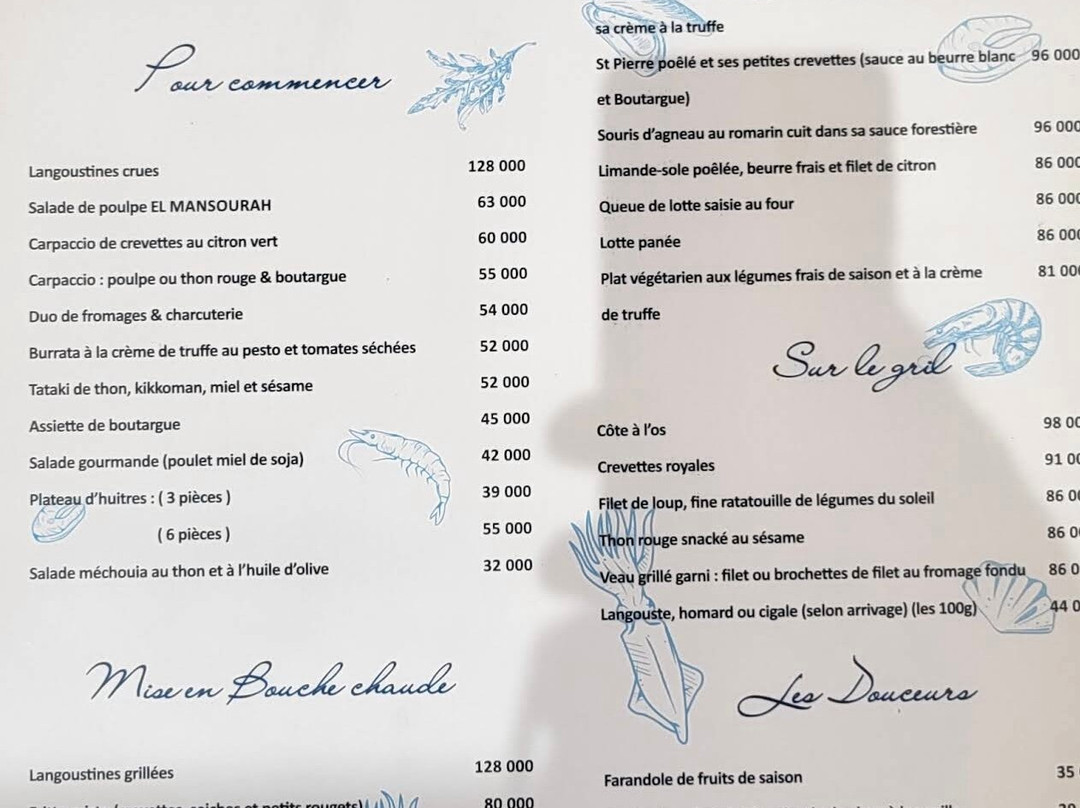 Pour commencer
Langoustines crues 128 000
Salade de poulpe EL MANSOURAH 63 000
Carpaccio de crevettes au citron vert 60 000
Carpaccio : poulpe ou thon rouge & boutargue 55 000
Duo de fromages & charcuterie 54 000
Burrata à la crème de truffe au pesto et tomates séchées 52 000
Tataki de thon, kikkoman, miel et sésame 52 000
Assiette de boutargue 45 000
Salade gourmande (poulet miel de soja) 42 000
Plateau d'huitres : ( 3 pièces ) 39 000
( 6 pièces ) 55 000
Salade méchouia au thon et à l'huile d'olive 32 000
Mise en Bouche chaude
Langoustines grillées 128 000
petits rougets) 80 000
sa crème à la truffe
St Pierre poêlé et ses petites crevettes (sauce au beurre blanc 96 000
et Boutargue)
Souris d'agneau au romarin cuit dans sa sauce forestière 96 000
Limande-sole poêlée, beurre frais et filet de citron 86 000
Queue de lotte saisie au four 86 000
Lotte panée 86 000
Plat végétarien aux légumes frais de saison et à la crème 81 000
de truffe
Sur le gril
Côte à l'os 98 00
Crevettes royales 91 00
Filet de loup, fine ratatouille de légumes du soleil 86 00
Thon rouge snacké au sésame 86 0
Veau grillé garni : filet ou brochettes de filet au fromage fondu 86 0
Langouste, homard ou cigale (selon arrivage) (les 100g) 44 0
Les Douceurs
Farandole de fruits de saison 35